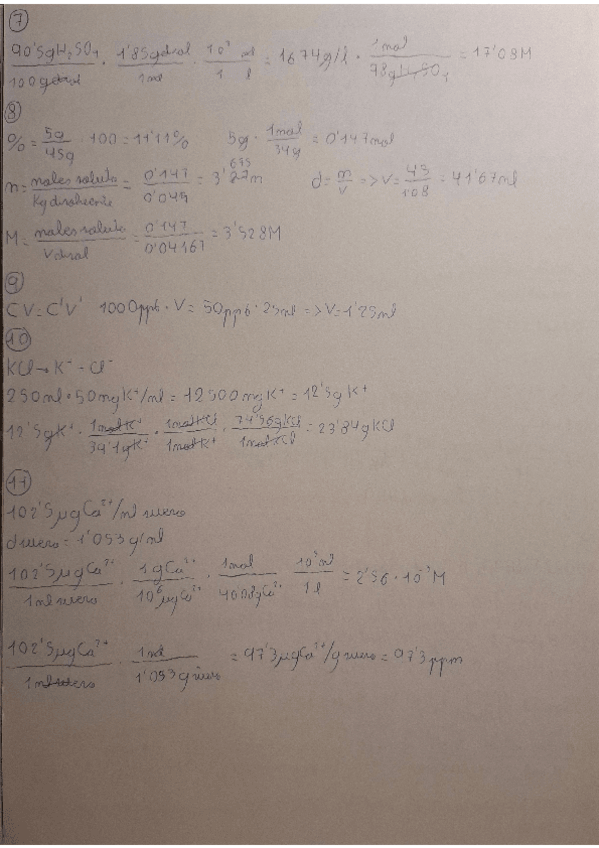 7
90'5gH₂SO₄/100gdisol · 1'85gdisol/1ml · 10³ ml/1 l = 1674g/l · 1mol/98gH₂SO₄ = 17'08M
8
% = 5g/45g · 100 = 11'11% 5g · 1mol/34g = 0'147mol
m = moles soluto/Kg disolvente = 0'147/0'045 = 3' m d = m/v => V = 45/1'08 = 41'67ml
M = moles soluto/V disol = 0'147/0'04167 = 3'528M
9
CV = C'V' 1000ppb · V = 50ppb · 25ml => V = 1'25ml
10
KCl → K⁺ - Cl⁻
250ml · 50mgK⁺/ml = 12500mgK⁺ = 12'5gK⁺
12'5gK⁺ · 1molK⁺/39'1gK⁺ · 1molKCl/1molK⁺ · 74'56gKCl/1molKCl = 23'84gKCl
11
102'5µgCa²⁺/ml suero
d suero = 1'053g/ml
102'5µgCa²⁺/1ml suero · 1gCa²⁺/10⁶µgCa²⁺ · 1mol/40'08gCa²⁺ · 10³ml/1l = 2'56·10⁻³M
102'5µgCa²⁺/1ml suero · 1ml/1'053g suero = 97'3µgCa²⁺/g suero = 97'3ppm